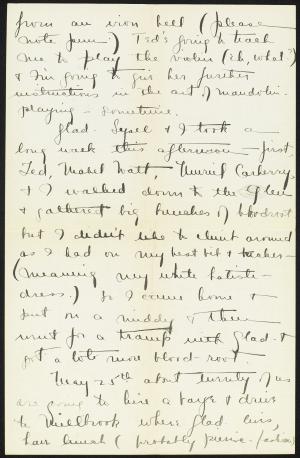 from an iron bell (please
note pun.) Ted's going to teach
me to play the violin (Eh, what?)
& I'm going to give her further
instructions in the art of mandolin-
playing - sometime.
Glad. & I took a
long walk this afternoon - first
Ted, Mabel Watt, Muriel Carberry,
& I walked down to the Glen
& gathered big bunches of bloodroot
but I didn't like to climb around
as I had on my best bib & tucker -
(meaning my white batiste
dress.) So I came home &
put on a middy & then
went for a tramp with Glad. &
got a lot more blood-root.
May 25th about twenty of us
are going to hire a barge & drive
to Millbrook where Glad. lives,
have lunch (probably picnic-fashion)